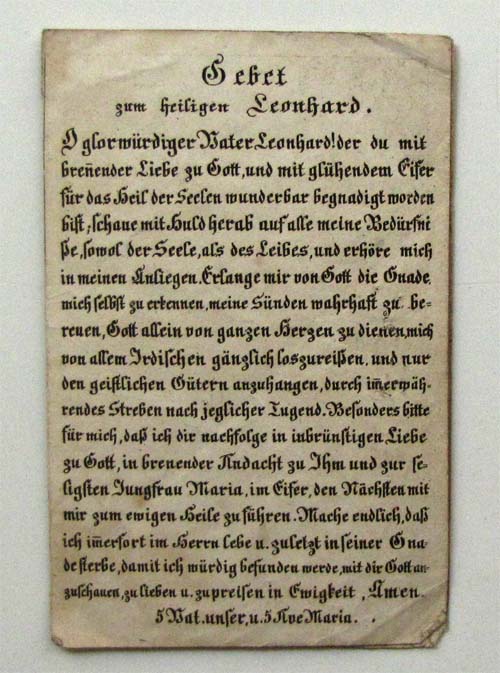 Gebet
zum heiligen Leonhard.
O glorwürdiger Vater Leonhard! der du mit
breñender Liebe zu Gott, und mit glühendem Eifer
für das Heil der Seelen wunderbar begnadigt worden
bist; schaue mit Huld herab auf alle meine Bedürfni
ße, sowol der Seele, als des Leibes, und erhöre mich
in meinen Anliegen. Erlange mir von Gott die Gnade,
mich selbst zu erkennen, meine Sünden wahrhaft zu be-
reuen, Gott allein von ganzen Herzen zu dienen, mich
von allem Irdischen gänzlich loszureißen, und nur
den geistlichen Gütern anzuhangen, durch im̃erwäh-
rendes Streben nach jeglicher Tugend. Besonders bitte
für mich, daß ich dir nachfolge in inbrünstigen Liebe
zu Gott, in brenender Andacht zu Ihm und zur se-
ligsten Jungfrau Maria, im Eifer, den Nächsten mit
mir zum ewigen Heile zu führen. Mache endlich, daß
ich im̃erfort im Herrn lebe u. zuletzt in seiner Gna-
de sterbe, damit ich würdig befunden werde, mit dir Gott an-
zuschauen, zu lieben u. zu preisen in Ewigkeit, Amen.
5 Vat. unser, u. 5 Ave Maria.